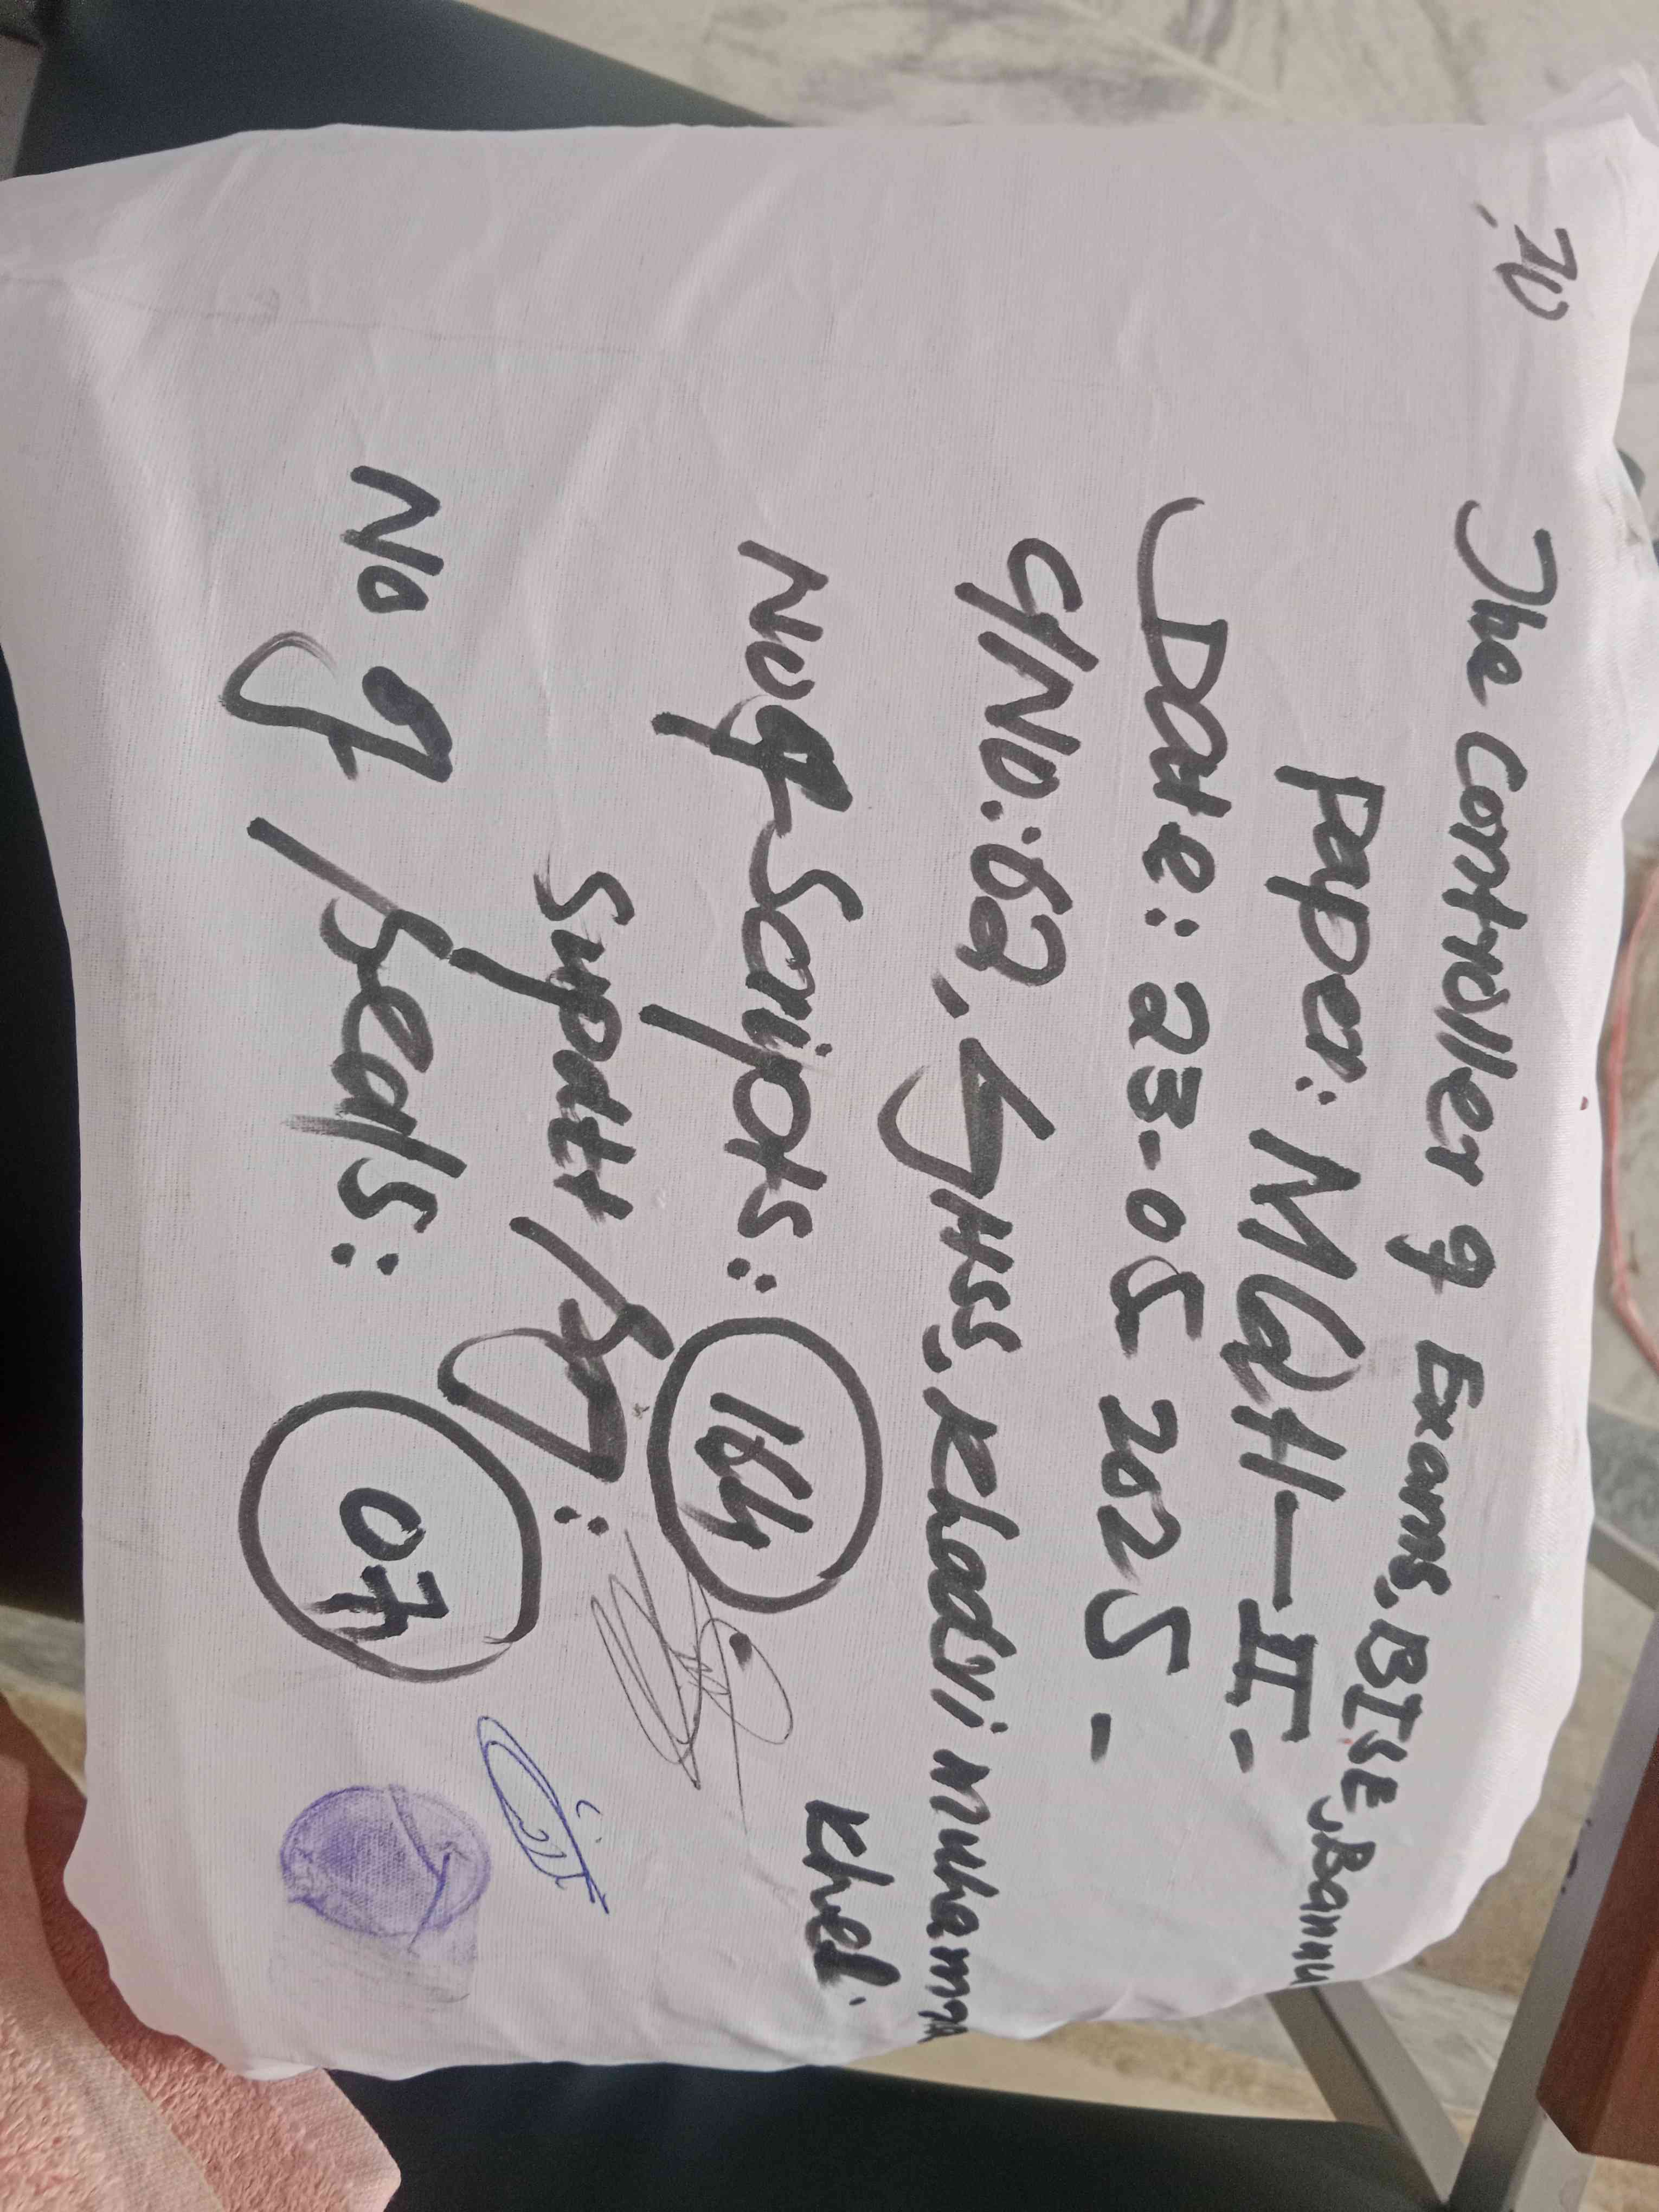 To,
The Controller of Exams. BISE, Bannu
Paper: MATH-II-
Date: 23-05 2025-
C/No: 62, GHSS. Khadri Muhammad
Khel.
No of Scripts: 164
Supdtt Sig:
No of Seals: 07